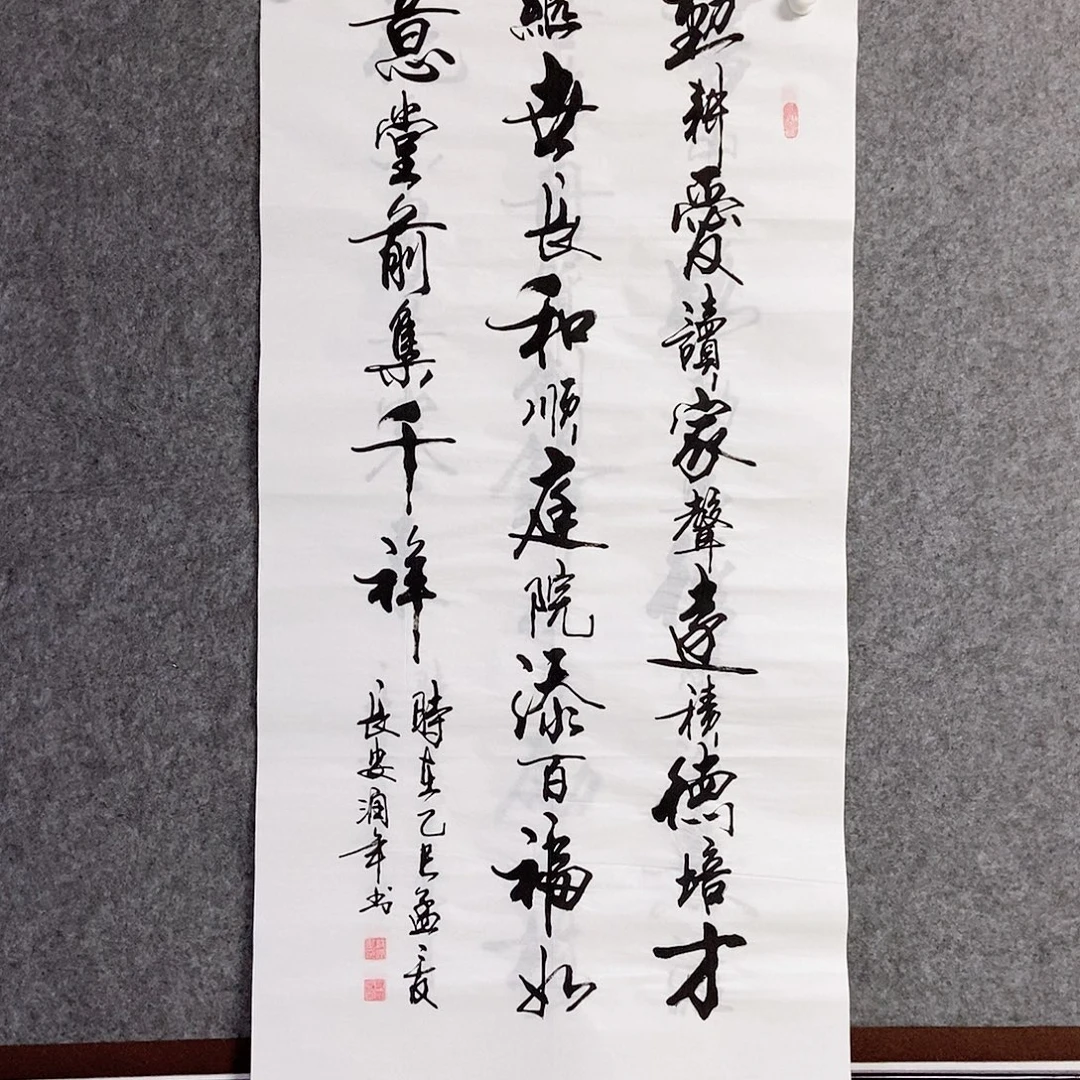 勤耕愛讀家聲遠積德培才
繼世長和順庭院添百福如
意堂前集千祥
時在乙巳孟夏
長安潤年书